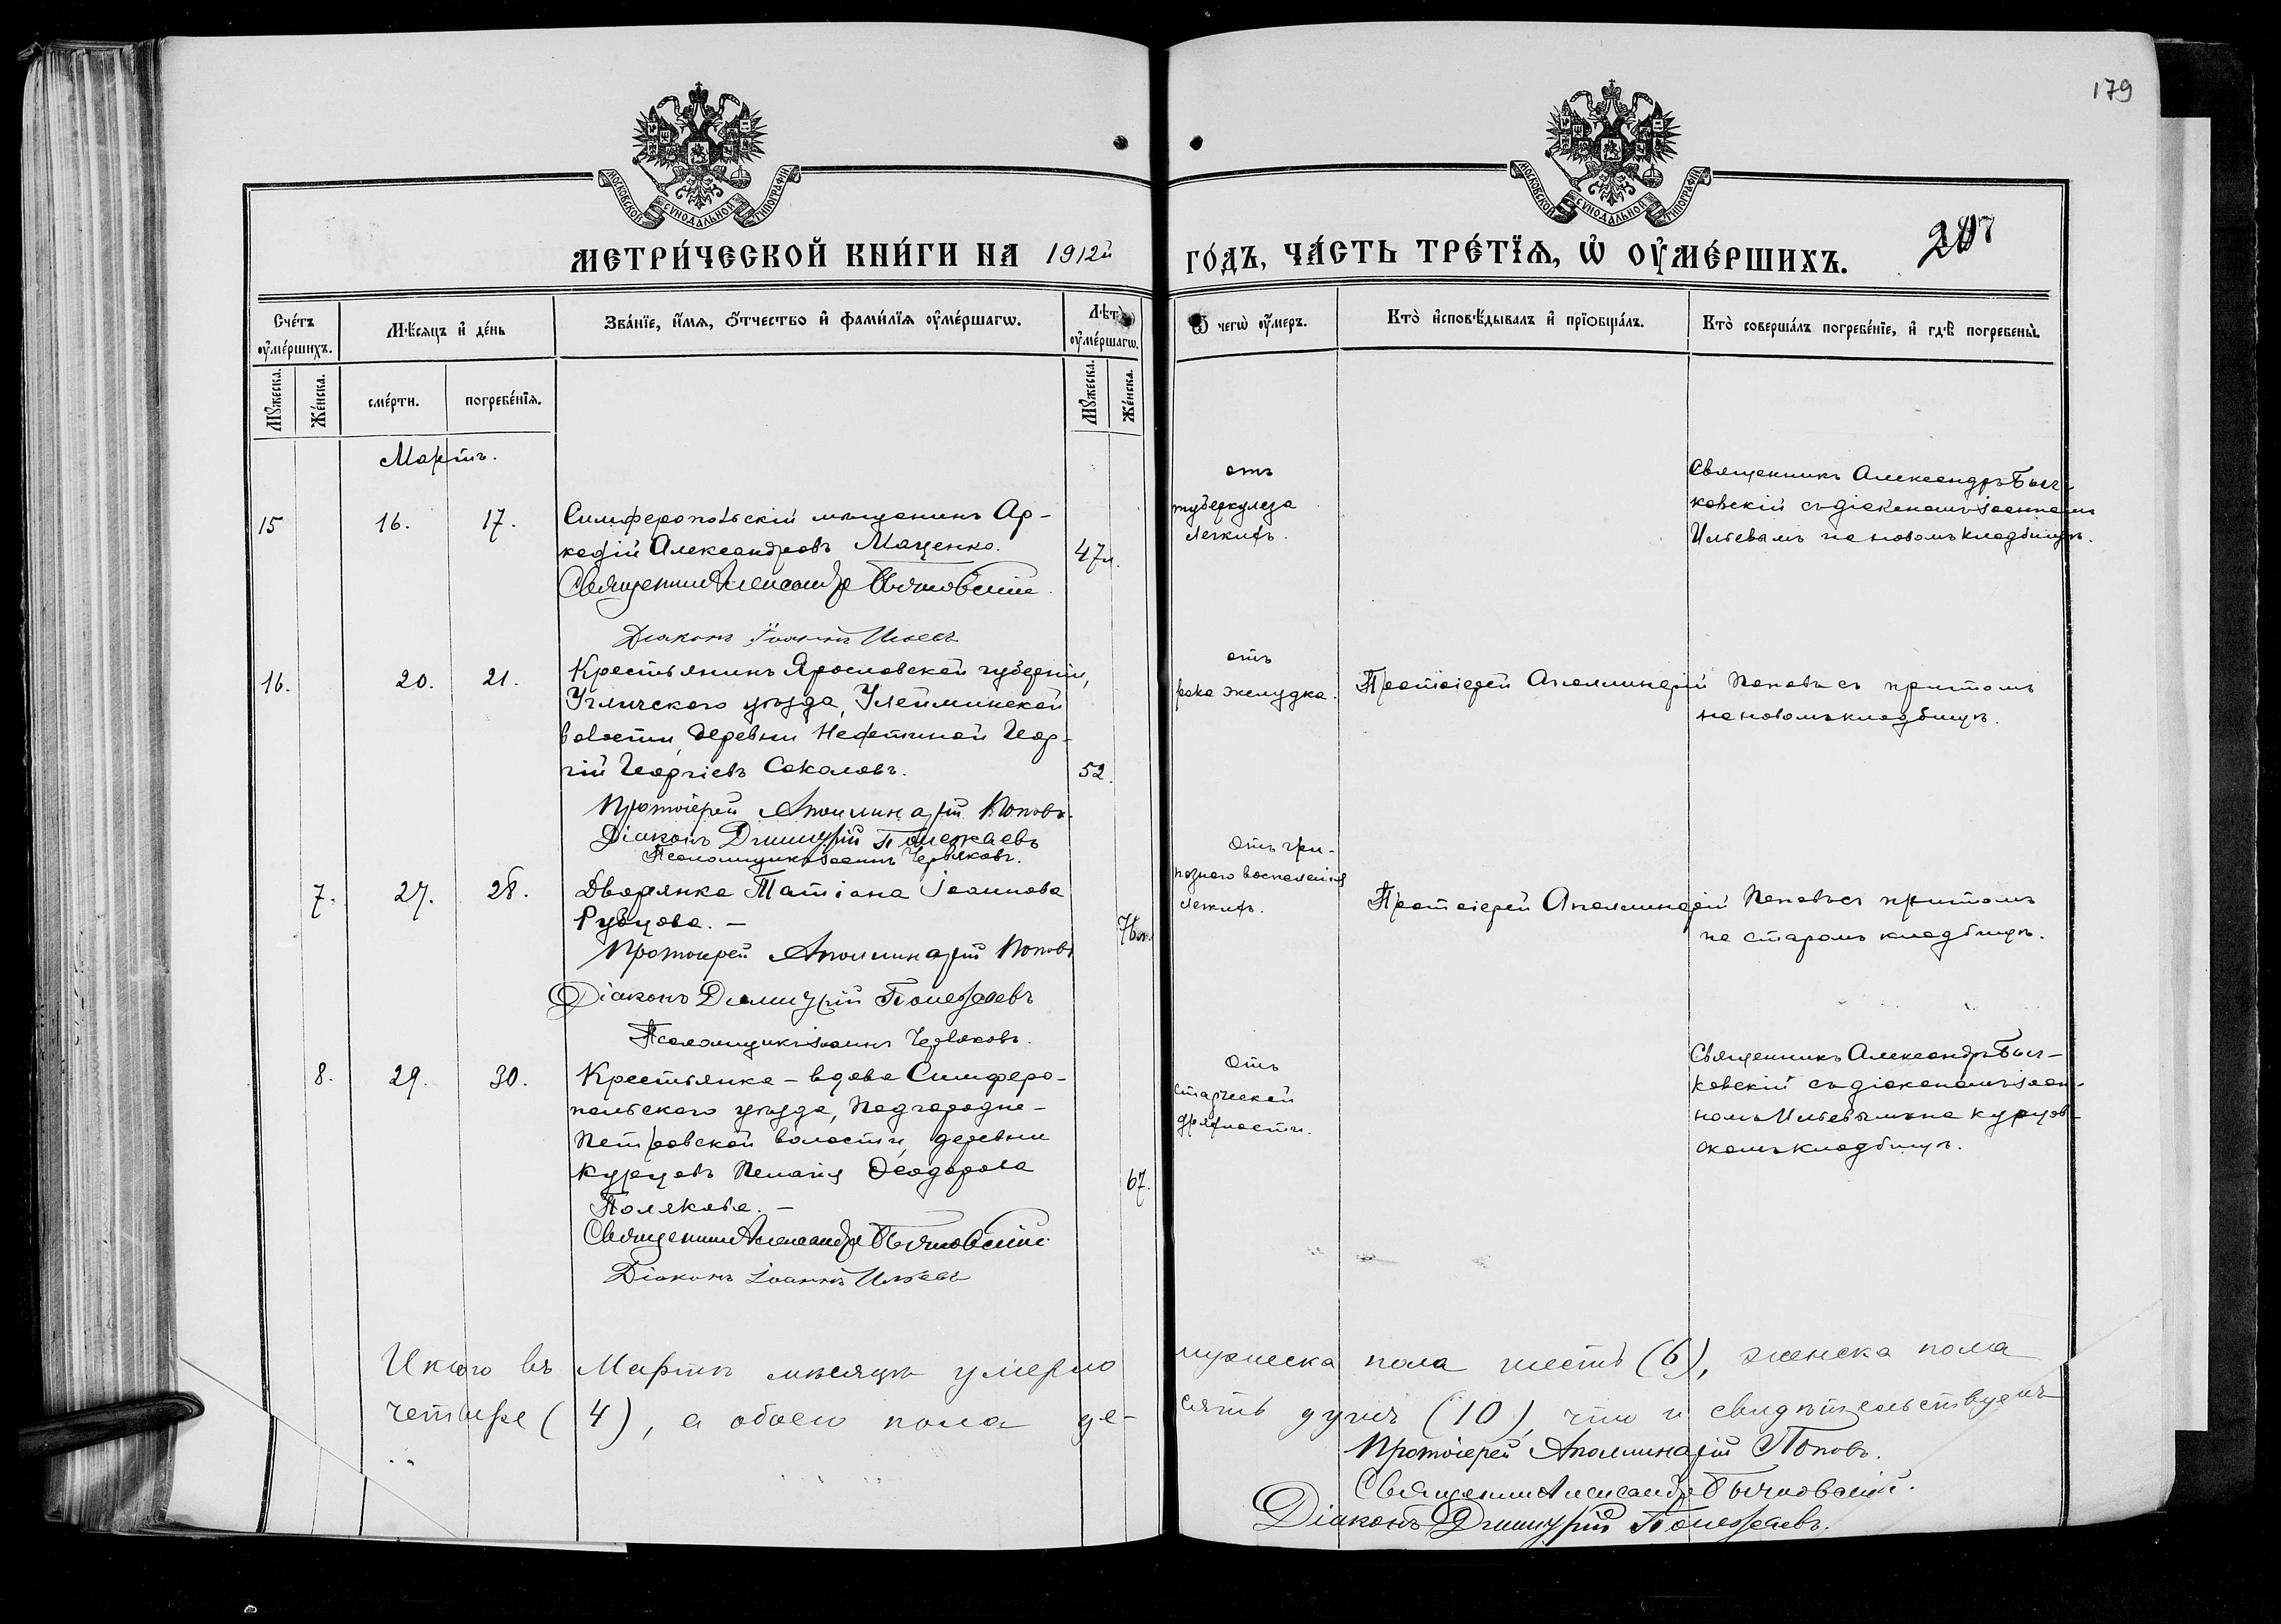 179
МОСКОВСКОЙ СѴНОДАЛЬНОЙ ТИПОГРАФІИ
МОСКОВСКОЙ СѴНОДАЛЬНОЙ ТИПОГРАФІИ
МЕТРИ́ЧЕСКОЙ КНИ́ГИ НА 1912й
ГО́ДЪ, ЧА́СТЬ ТРЕ́ТЇѦ, Ѡ҆ ОУ҆МЕ́РШИХЪ.
Сче́тъ оу҆ме́ршихъ.
Мѣ́сяцъ и҆ де́нь
Зва́нїе, и҆́мя, ѻ҆́тчество и҆ фами́лїя оу҆ме́ршагѡ.
Лѣ́тъ оу҆ме́ршагѡ.
Ѿ чегѡ̀ оу҆́меръ.
Кто̀ и҆сповѣ́дывалъ и҆ прїѻбща́лъ.
Кто̀ соверша́лъ погребе́нїе, и҆ гдѣ̀ погребены̀.
Мꙋ́жеска.
Же́нска.
сме́рти.
погребе́нїя.
Мꙋ́жеска.
Же́нска.
Мартъ.
15 16. 17.
Симферопольскій мѣщанинъ Ар-
кадій Александровъ Маценко.
47л.
Священникъ Александръ Бычковскій
Діаконъ Іоаннъ Ильевъ
отъ
туберкулеза
легкихъ.
Священникъ Александръ Быч-
ковскій съ діакономъ Іоанномъ
Ильевымъ на новомъ кладбищѣ.
16. 20. 21.
Крестьянинъ Ярославской губерніи,
Угличскаго уѣзда, Улейминской
волости, деревни Нефетиной Геор-
гій Георгіевъ Соколовъ.
52.
Протоіерей Аполлинарій Поповъ.
Діаконъ Димитрій Полежаевъ
Псаломщикъ Іоаннъ Червяковъ.
отъ
рака желудка.
Протоіерей Аполлинарій Поповъ съ причтомъ
на новомъ кладбищѣ.
7. 27. 28.
Дворянка Татіана Іоаннова
Рубцова. —
76л.
Протоіерей Аполлинарій Поповъ
Діаконъ Димитрій Полежаевъ
Псаломщикъ Іоаннъ Червяковъ.
Отъ грип-
познаго воспаленія
легкихъ.
Протоіерей Аполлинарій Поповъ съ причтомъ
на старомъ кладбищѣ.
8. 29. 30.
Крестьянка – вдова Симферо-
польскаго уѣзда, Подгородне-
Петровской волости, деревни
Курцовъ Пелагія Ѳеодорова
67.
Полякова. —
Священникъ Александръ Бычковскій
Діаконъ Іоаннъ Ильевъ
Отъ
старческой
дряхлости.
Священникъ Александръ Быч-
ковскій съ діакономъ Іоан-
номъ Ильевымъ на курцов-
скомъ кладбищѣ.
Итого въ Мартѣ мѣсяцѣ умерло мужеска пола шесть (6), женска пола
четыре (4), а обоего пола де- сять душъ (10), что и свидѣтельствуемъ
Протоіерей Аполлинарій Поповъ.
Священникъ Александръ Бычковскій.
Діаконъ Димитрій Полежаевъ.